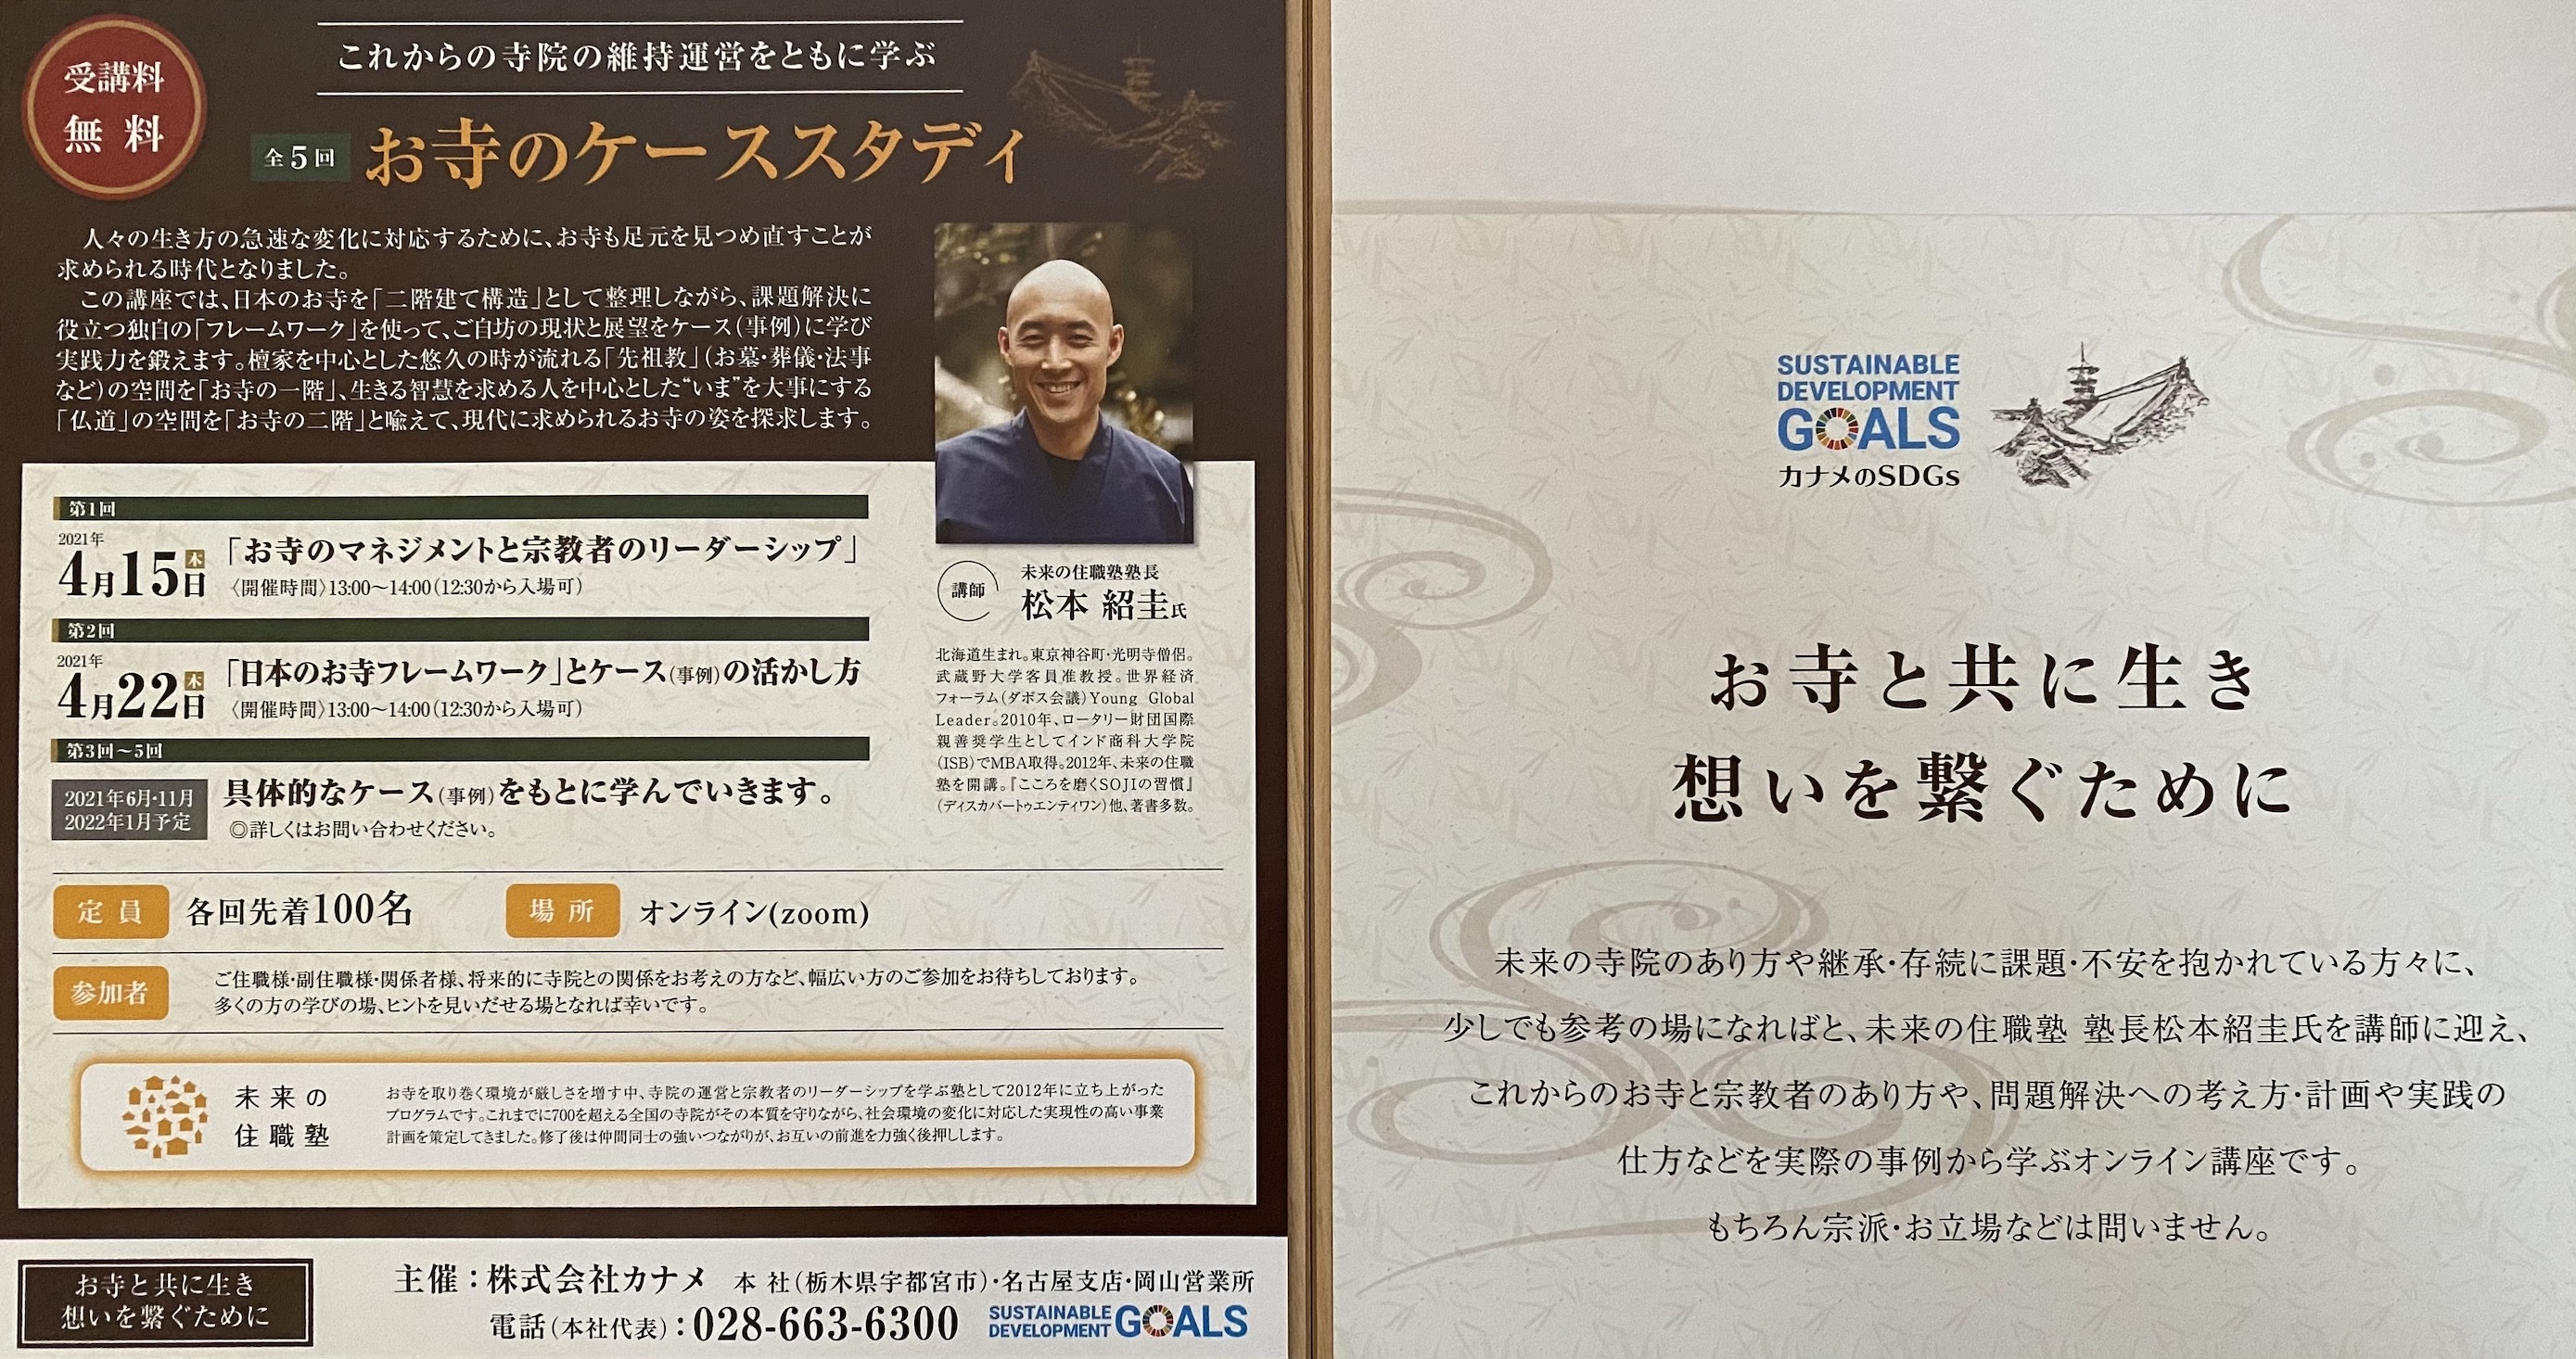 受講料
無料
これからの寺院の維持運営をともに学ぶ
全5回 お寺のケーススタディ
人々の生き方の急速な変化に対応するために、お寺も足元を見つめ直すことが
求められる時代となりました。
この講座では、日本のお寺を「二階建て構造」として整理しながら、課題解決に
役立つ独自の「フレームワーク」を使って、ご自坊の現状と展望をケース(事例)に学び
実践力を鍛えます。檀家を中心とした悠久の時が流れる「先祖教」(お墓・葬儀・法事
など)の空間を「お寺の一階」、生きる智慧を求める人を中心とした“いま”を大事にする
「仏道」の空間を「お寺の二階」と喩えて、現代に求められるお寺の姿を探求します。
第1回
2021年
4月15日 木
「お寺のマネジメントと宗教者のリーダーシップ」
〈開催時間〉13:00〜14:00(12:30から入場可)
第2回
2021年
4月22日 木
「日本のお寺フレームワーク」とケース(事例)の活かし方
〈開催時間〉13:00〜14:00(12:30から入場可)
第3回〜5回
2021年6月・11月
2022年1月予定
具体的なケース(事例)をもとに学んでいきます。
◎詳しくはお問い合わせください。
講師
未来の住職塾塾長
松本 紹圭氏
北海道生まれ。東京神谷町・光明寺僧侶。
武蔵野大学客員准教授。世界経済
フォーラム(ダボス会議)Young Global
Leader。2010年、ロータリー財団国際
親善奨学生としてインド商科大学院
(ISB)でMBA取得。2012年、未来の住職
塾を開講。『こころを磨くSOJIの習慣』
(ディスカバートゥエンティワン)他、著書多数。
定員 各回先着100名
場所 オンライン(zoom)
参加者
ご住職様・副住職様・関係者様、将来的に寺院との関係をお考えの方など、幅広い方のご参加をお待ちしております。
多くの方の学びの場、ヒントを見いだせる場となれば幸いです。
未来の
住職塾
お寺を取り巻く環境が厳しさを増す中、寺院の運営と宗教者のリーダーシップを学ぶ塾として2012年に立ち上がった
プログラムです。これまでに700を超える全国の寺院がその本質を守りながら、社会環境の変化に対応した実現性の高い事業
計画を策定してきました。修了後は仲間同士の強いつながりが、お互いの前進を力強く後押しします。
お寺と共に生き
想いを繋ぐために
主催:株式会社カナメ 本 社(栃木県宇都宮市)・名古屋支店・岡山営業所
電話(本社代表):028-663-6300
SUSTAINABLE
DEVELOPMENT
GOALS
SUSTAINABLE
DEVELOPMENT
GOALS
カナメのSDGs
お寺と共に生き
想いを繋ぐために
未来の寺院のあり方や継承・存続に課題・不安を抱かれている方々に、
少しでも参考の場になればと、未来の住職塾 塾長松本紹圭氏を講師に迎え、
これからのお寺と宗教者のあり方や、問題解決への考え方・計画や実践の
仕方などを実際の事例から学ぶオンライン講座です。
もちろん宗派・お立場などは問いません。